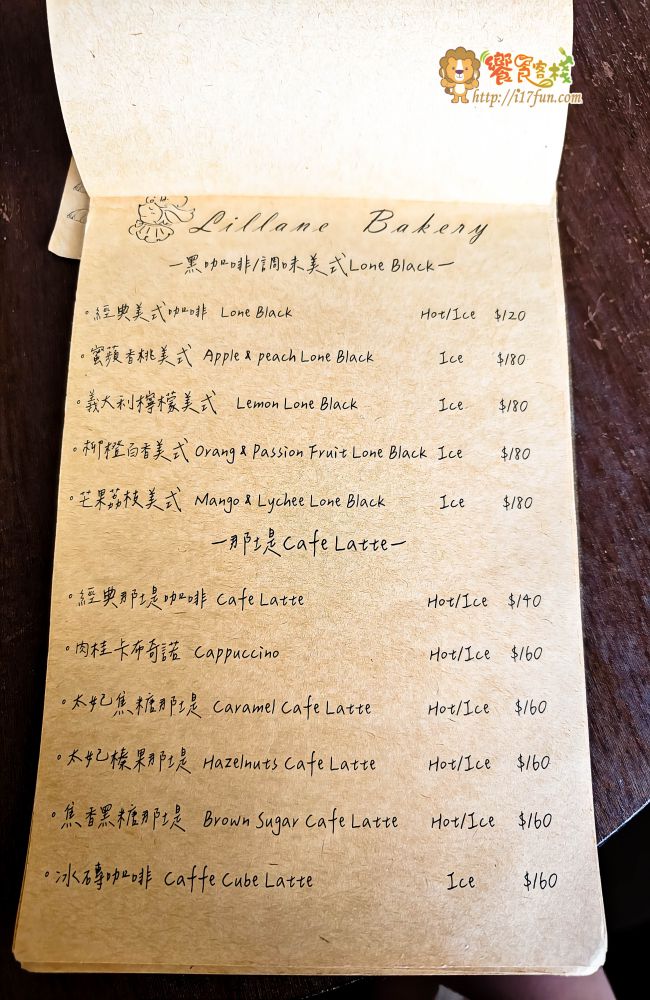 饗賓客棧
http://i17fun.com
Lillane Bakery
—黑咖啡/調味美式Lone Black—
°經典美式咖啡 Lone Black Hot/Ice $120
°蜜蘋香桃美式 Apple & peach Lone Black Ice $180
°義大利檸檬美式 Lemon Lone Black Ice $180
°柳橙百香美式 Orang & Passion Fruit Lone Black Ice $180
°芒果荔枝美式 Mango & Lychee Lone Black Ice $180
—那堤Cafe Latte—
°經典那堤咖啡 Cafe Latte Hot/Ice $140
°肉桂卡布奇諾 Cappuccino Hot/Ice $160
°太妃焦糖那堤 Caramel Cafe Latte Hot/Ice $160
°太妃榛果那堤 Hazelnuts Cafe Latte Hot/Ice $160
°焦香黑糖那堤 Brown Sugar Cafe Latte Hot/Ice $160
°冰磚咖啡 Caffe Cube Latte Ice $160